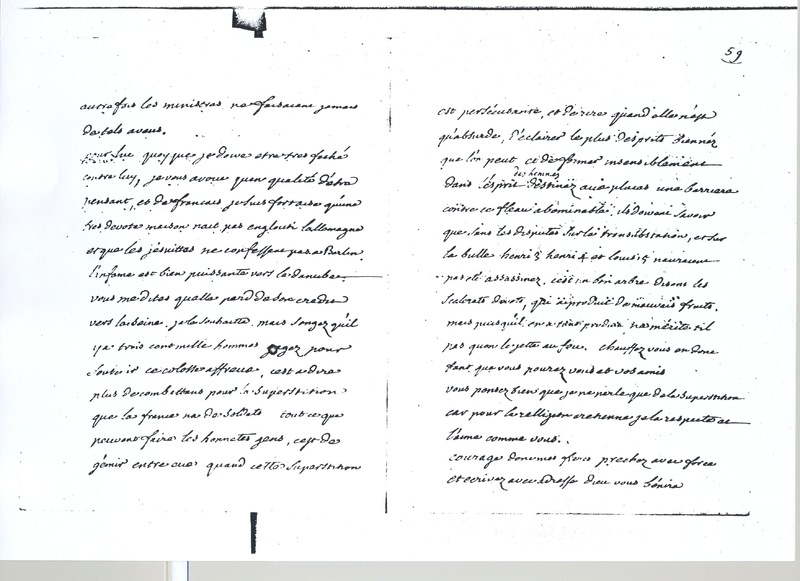 autrefois les ministres ne faisaient jamais
de tels aveus.
pour luc quoy que je doive etre tres faché
contre luy, je vous avoue qu'en qualité d'etre
pensant, et de francais je suis fort aise qu'une
tres devote maison nait pas englouti lallemagne
et que les jesuittes ne confessent pas a Berlin.
l'infame est bien puissante vers le danube.
vous me dites quelle perd de son credit
vers la seine. je le souhaitte. mais songez qu'il
y a trois cent mille hommes gagez pour
soutenir ce colosse affreux, cest a dire
plus de combattans pour la superstition
que la france na de soldats tout ce que
peuvent faire les honnetes gens, c'est de
gémir entre eux quand cette superstition
59
est persécutante, et de rire quand elle n'est
qu'absurde, d'éclairer le plus desprits bien nez
que l'on peut, et de former insensiblement
dans l'esprit des hommes destinez aux places une barriere
contre ce fleau abominable. ils doivent savoir
que sans les disputes sur la transubstantiation, et sur
la bulle henri 3 henri 4 et louis 15 nauraient
pas été assassinez. c'est un bon arbre disent les
scelerats devots, qui a produit de mauvais fruits.
mais puisqu'il en a tant produit ne mérite t il
pas quon le jette au feu. chauffez vous en donc
tant que vous pourez vous et vos amis
vous pensez bien que je ne parle que de la superstition
car pour la relligion cretienne je la respecte et
l'aime comme vous.
courage donc mes freres prechez avec force
et ecrivez avec adresse dieu vous bénira